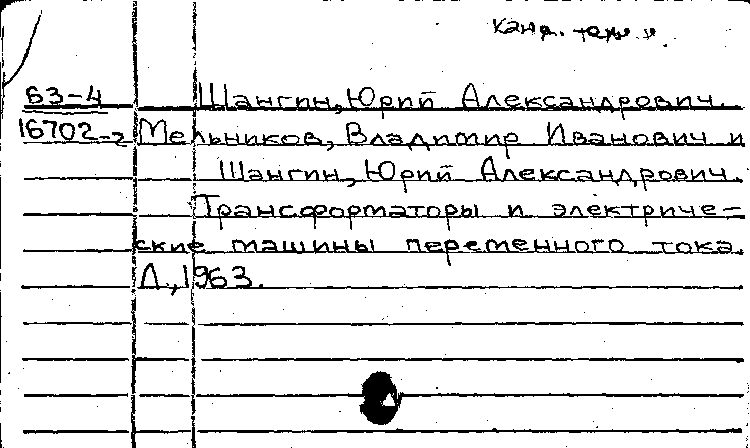 канд. техн. н.
63-4 Шангин, Юрий Александрович.
16702-2 Мельников, Владимир Иванович и
Шангин, Юрий Александрович.
Трансформаторы и электриче-
ские машины переменного тока.
Л., 1963.